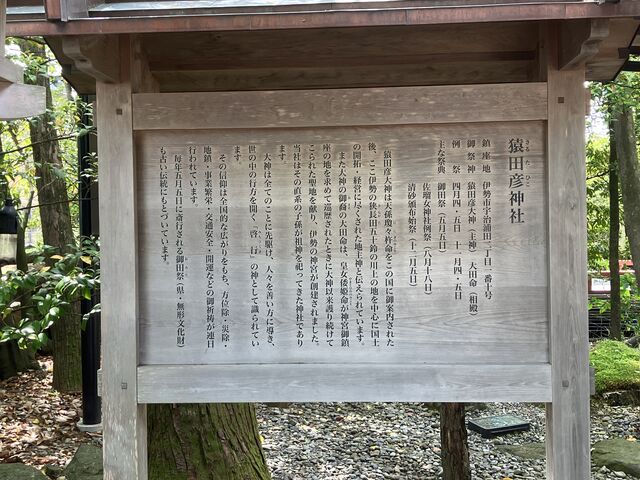 猿田彦神社
さる た ひこ
鎮座地 伊勢市宇治浦田二丁目一番十号
御祭神 猿田彦大神（主神）大田命（相殿）
例祭 四月四・五日 十月四・五日
主な祭典 御田祭（五月五日）
佐瑠女神社例祭（八月十八日）
清砂頒布始祭（十二月五日）
猿田彦大神は天孫瓊々杵命をこの国に御案内された
後、ここ伊勢の狭長田五十鈴の川上の地を中心に国土
の開拓・経営に尽くされた地主神と伝えられています。
また大神の御裔の大田命は、皇女倭姫命が神宮御鎮
座の地を求めて巡歴されたときに大神以来護り続けて
こられた聖地を献り、伊勢の神宮が創建されました。
当社はその直系の子孫が祖神を祀ってきた神社であり
ます。
大神は全てのことに先駆け、人々を善い方に導き、
世の中の行方を開く“啓行”の神として識られてい
ます。
その信仰は全国的な広がりをもち、方位除・災除・
地鎮・事業繁栄・交通安全・開運などの御祈祷が連日
行われています。
毎年五月五日に斎行される御田祭（県・無形文化財）
も古い伝統にもとづいています。